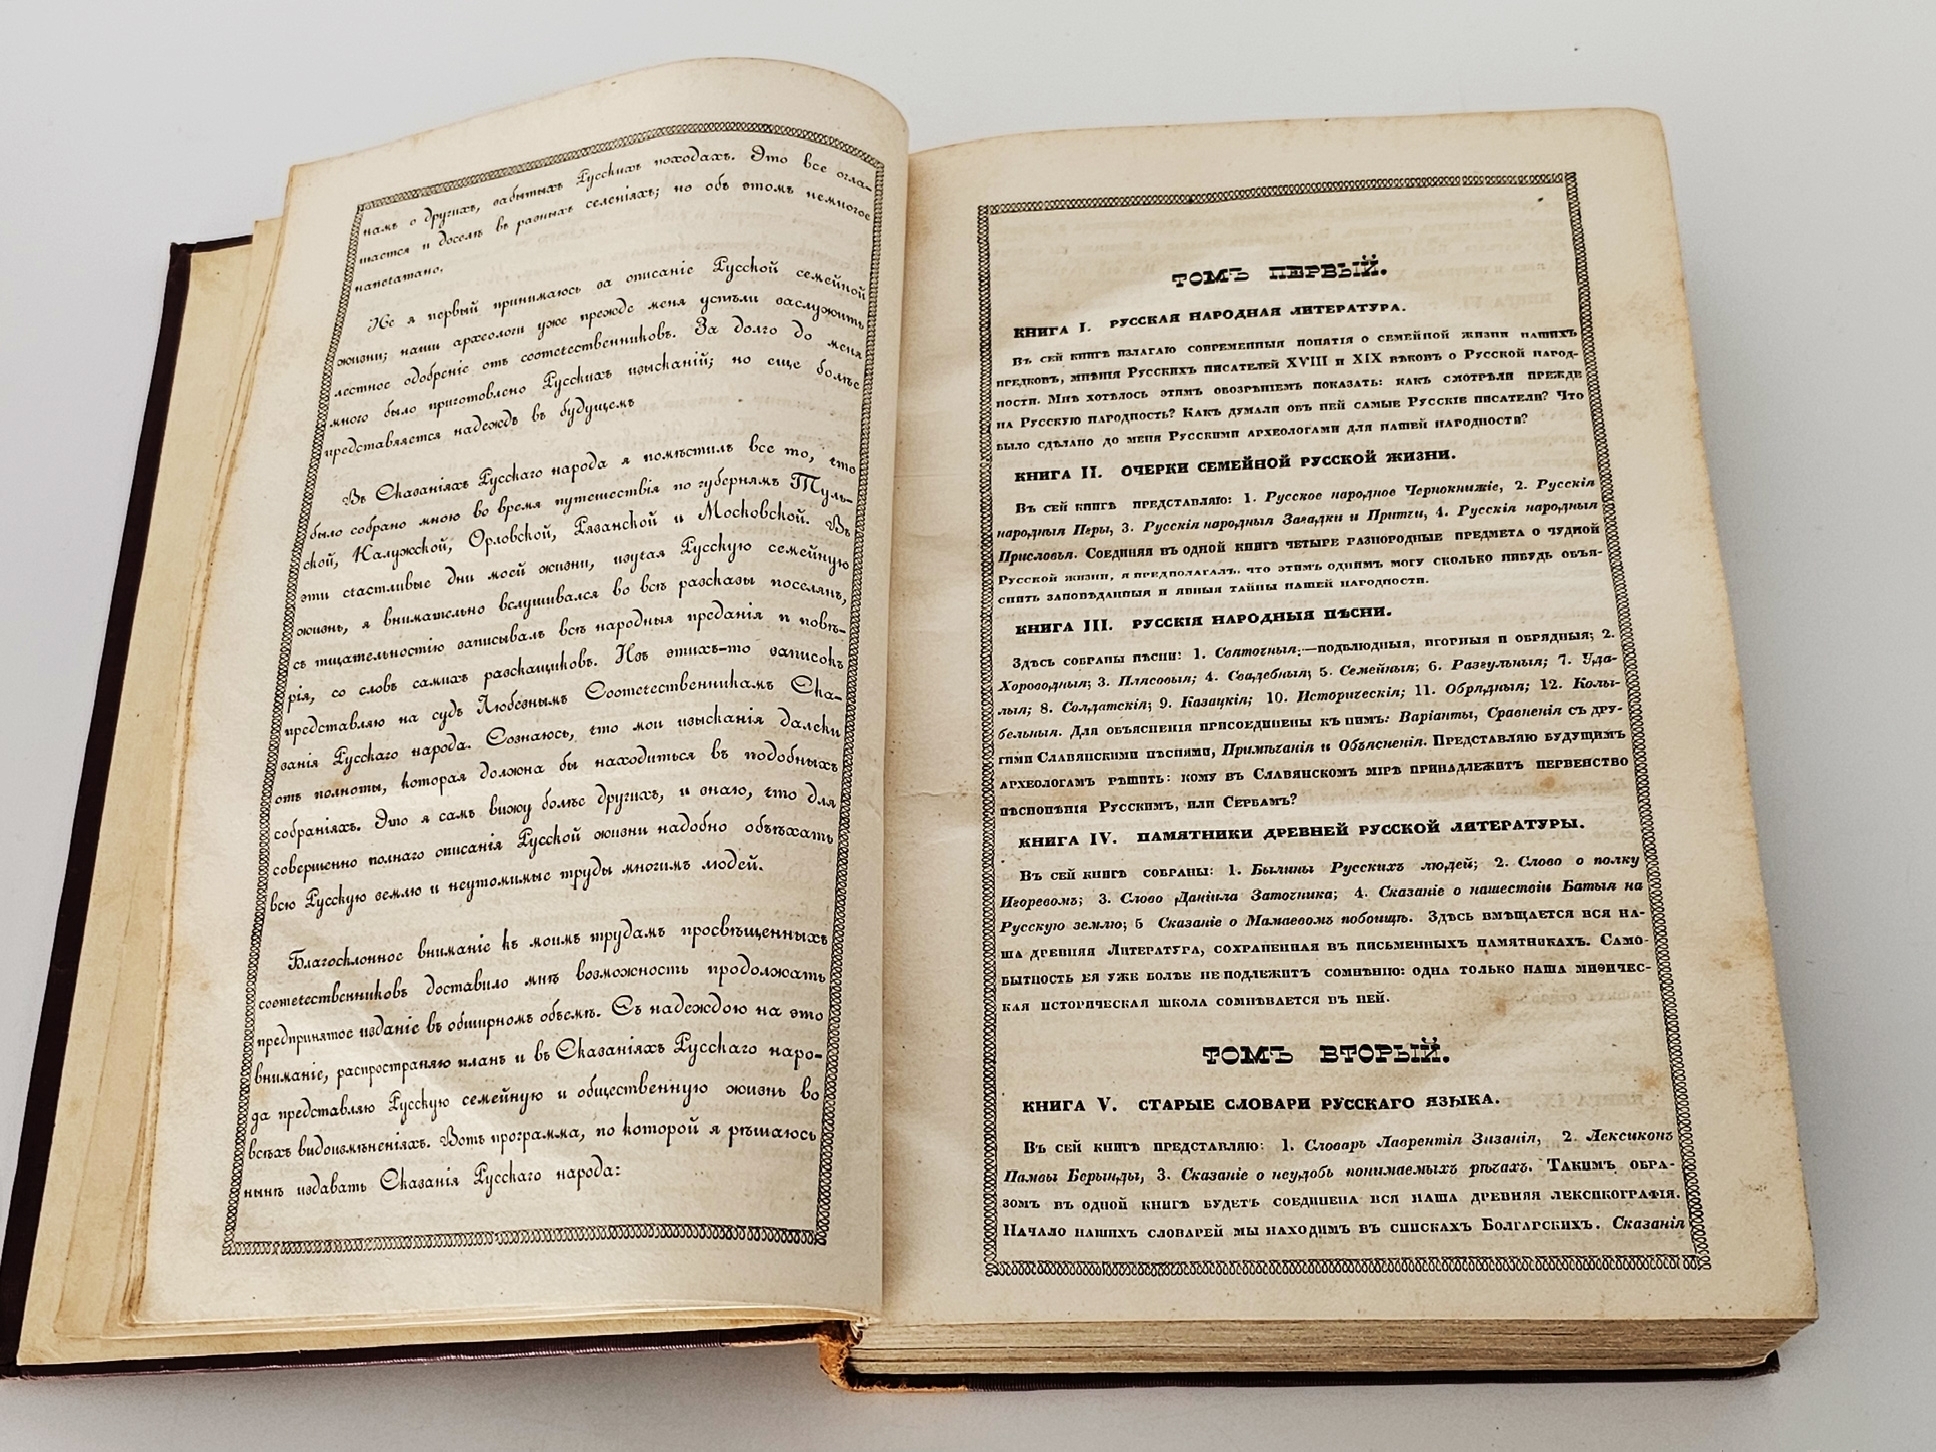 намъ о другихъ, забытыхъ Русскихъ походахъ. Это все огла-
шается и доселѣ въ разныхъ селеніяхъ; но объ этомъ немногое
напечатано.
Не я первый принимаюсь за описаніе Русской семейной
жизни; наши археологи уже прежде меня успѣли заслужить
лестное одобреніе отъ соотечественниковъ. За долго до меня
много было приготовлено Русскихъ изысканій; но еще болѣе
представляется надеждъ въ будущемъ
Въ Сказаніяхъ Русскаго народа я помѣстилъ все то, что
было собрано мною во время путешествія по губерніямъ Туль-
ской, Калужской, Орловской, Рязанской и Московской. Въ
эти счастливые дни моей жизни, изучая Русскую семейную
жизнь, я внимательно вслушивался во всѣ разсказы поселянъ,
съ тщательностію записывалъ всѣ народныя преданія и повѣ-
рія, со словъ самихъ разскащиковъ. Изъ этихъ-то записокъ
представляю на судъ Любезнымъ Соотечественникамъ Ска-
занія Русскаго народа. Сознаюсь, что мои изысканія далеки
отъ полноты, которая должна бы находиться въ подобныхъ
собраніяхъ. Это я самъ вижу болѣе другихъ, и знаю, что для
совершенно полнаго описанія Русской жизни надобно объѣхать
всю Русскую землю и неутомимые труды многимъ людей.
Благосклонное вниманіе къ моимъ трудамъ просвѣщенныхъ
соотечественниковъ доставило мнѣ возможность продолжать
предпринятое изданіе въ обширномъ объемѣ. Съ надеждою на это
вниманіе, распространяю планъ и въ Сказаніяхъ Русскаго наро-
да представляю Русскую семейную и общественную жизнь во
всѣхъ видоизмѣненіяхъ. Вотъ программа, по которой я рѣшаюсь
нынѣ издавать Сказанія Русскаго народа:
ТОМЪ ПЕРВЫЙ.
КНИГА I. РУССКАЯ НАРОДНАЯ ЛИТЕРАТУРА.
Въ сей книгѣ излагаю современныя понятія о семейной жизни нашихъ
предковъ, мнѣнія Русскихъ писателей XVIII и XIX вѣковъ о Русской народ-
ности. Мнѣ хотѣлось этимъ обозрѣніемъ показать: какъ смотрѣли прежде
на Русскую народность? Какъ думали объ ней самые Русскіе писатели? Что
было сдѣлано до меня Русскими археологами для нашей народности?
КНИГА II. ОЧЕРКИ СЕМЕЙНОЙ РУССКОЙ ЖИЗНИ.
Въ сей книгѣ представляю: 1. Русское народное Чернокнижіе, 2. Русскія
народныя Игры, 3. Русскія народныя Загадки и Притчи, 4. Русскія народныя
Присловья. Соединяя въ одной книгѣ четыре разнородные предмета о чудной
Русской жизни, я предполагалъ, что этимъ однимъ могу сколько нибудь объя-
снить заповѣданныя и явныя тайны нашей народности.
КНИГА III. РУССКІЯ НАРОДНЫЯ ПѢСНИ.
Здѣсь собраны пѣсни: 1. Святочныя:—подблюдныя, игорныя и обрядныя; 2.
Хороводныя; 3. Плясовыя; 4. Свадебныя; 5. Семейныя; 6. Разгульныя; 7. Уда-
лыя; 8. Солдатскія; 9. Казацкія; 10. Историческія; 11. Обрядныя; 12. Колы-
бельныя. Для объясненія присоединены къ нимъ: Варіанты, Сравненія съ дру-
гими Славянскими пѣснями, Примѣчанія и Объясненія. Представляю будущимъ
археологамъ рѣшить: кому въ Славянскомъ мірѣ принадлежитъ первенство
пѣснопѣнія Русскимъ, или Сербамъ?
КНИГА IV. ПАМЯТНИКИ ДРЕВНЕЙ РУССКОЙ ЛИТЕРАТУРЫ.
Въ сей книгѣ собраны: 1. Былины Русскихъ людей; 2. Слово о полку
Игоревомъ; 3. Слово Даніила Заточника; 4. Сказаніе о нашествіи Батыя на
Русскую землю; 5 Сказаніе о Мамаевомъ побоищѣ. Здѣсь вмѣщается вся на-
ша древняя Литература, сохраненная въ письменныхъ памятникахъ. Само-
бытность ея уже болѣе не подлежитъ сомнѣнію: одна только наша миѳичес-
кая историческая школа сомнѣвается въ ней.
ТОМЪ ВТОРЫЙ.
КНИГА V. СТАРЫЕ СЛОВАРИ РУССКАГО ЯЗЫКА.
Въ сей книгѣ представляю: 1. Словарь Лаврентія Зизанія, 2. Лексиконъ
Памвы Берынды, 3. Сказаніе о неудобь понимаемыхъ рѣчахъ. Такимъ обра-
зомъ въ одной книгѣ будетъ соединена вся наша древняя лексикографія.
Начало нашихъ словарей мы находимъ въ спискахъ Болгарскихъ. Сказанія